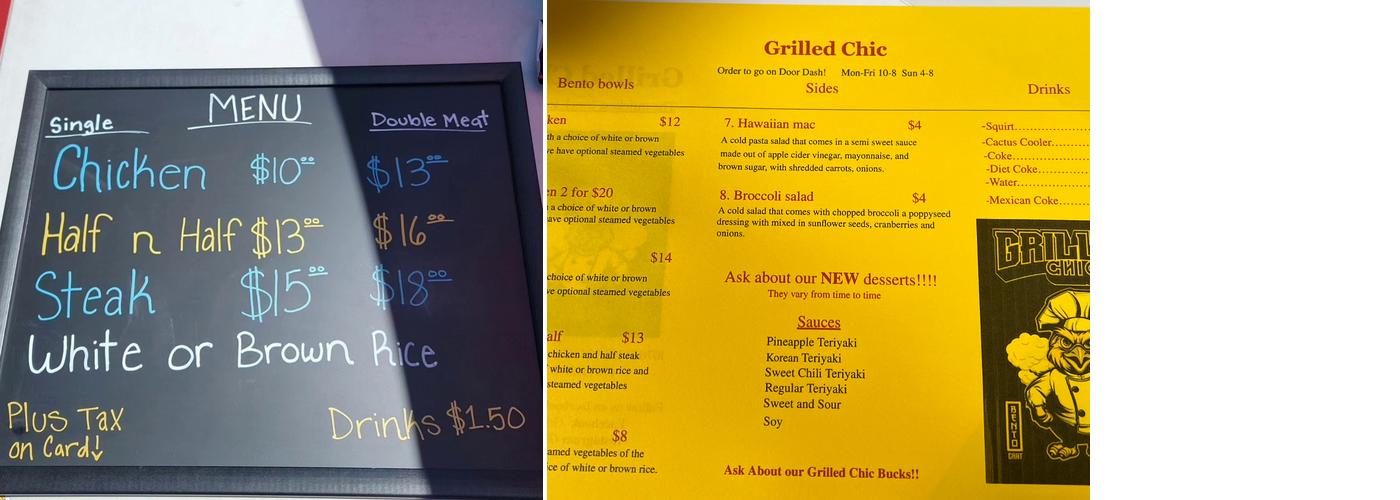 MENU
Single
Double Meat
Chicken $10⁰⁰ $13⁰⁰
Half n Half $13⁰⁰ $16⁰⁰
Steak $15⁰⁰ $18⁰⁰
White or Brown Rice
Plus Tax
on Card↓
Drinks $1.50
Grilled Chic
Order to go on Door Dash! Mon-Fri 10-8 Sun 4-8
Bento bowls
ken $12
th a choice of white or brown
ve have optional steamed vegetables
en 2 for $20
a choice of white or brown
ave optional steamed vegetables
$14
choice of white or brown
ve optional steamed vegetables
alf $13
chicken and half steak
white or brown rice and
steamed vegetables
$8
amed vegetables of the
ice of white or brown rice.
Sides
7. Hawaiian mac $4
A cold pasta salad that comes in a semi sweet sauce
made out of apple cider vinegar, mayonnaise, and
brown sugar, with shredded carrots, onions.
8. Broccoli salad $4
A cold salad that comes with chopped broccoli a poppyseed
dressing with mixed in sunflower seeds, cranberries and
onions.
Ask about our NEW desserts!!!!
They vary from time to time
Sauces
Pineapple Teriyaki
Korean Teriyaki
Sweet Chili Teriyaki
Regular Teriyaki
Sweet and Sour
Soy
Ask About our Grilled Chic Bucks!!
Drinks
-Squirt......................
-Cactus Cooler..........
-Coke......................
-Diet Coke...............
-Water.....................
-Mexican Coke........
GRILL
CHIC
BENTO
CART